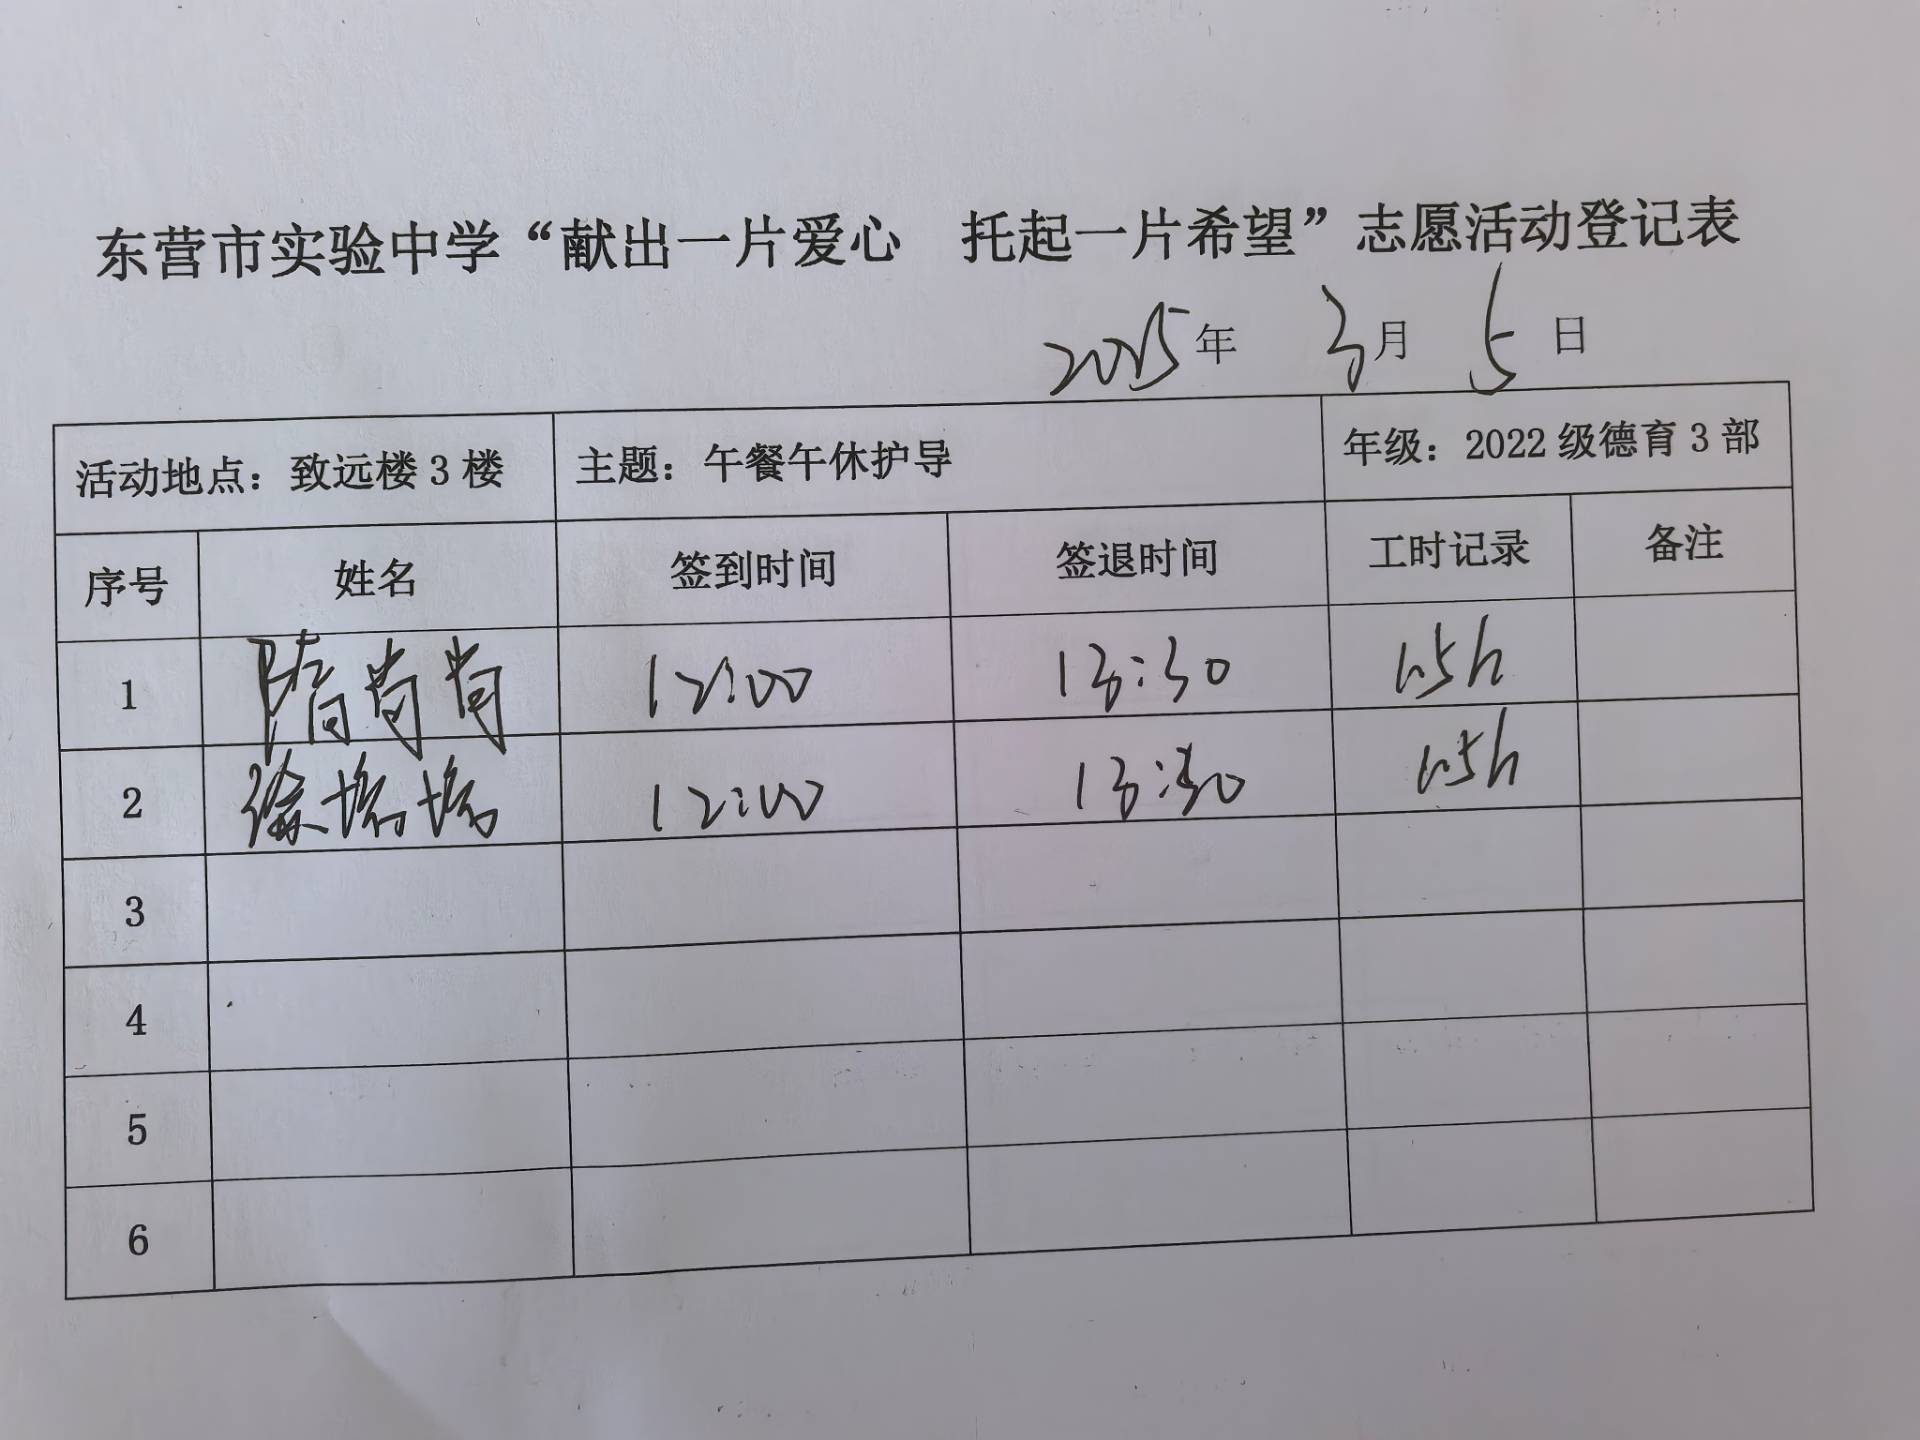 东营市实验中学“献出一片爱心 托起一片希望”志愿活动登记表
2025年 3月 5日
活动地点：致远楼 3 楼 主题：午餐午休护导 年级：2022 级德育 3 部
序号 姓名 签到时间 签退时间 工时记录 备注
1 隋尚尚 12:00 13:30 1.5h
2 徐 12:00 13:30 1.5h
3
4
5
6